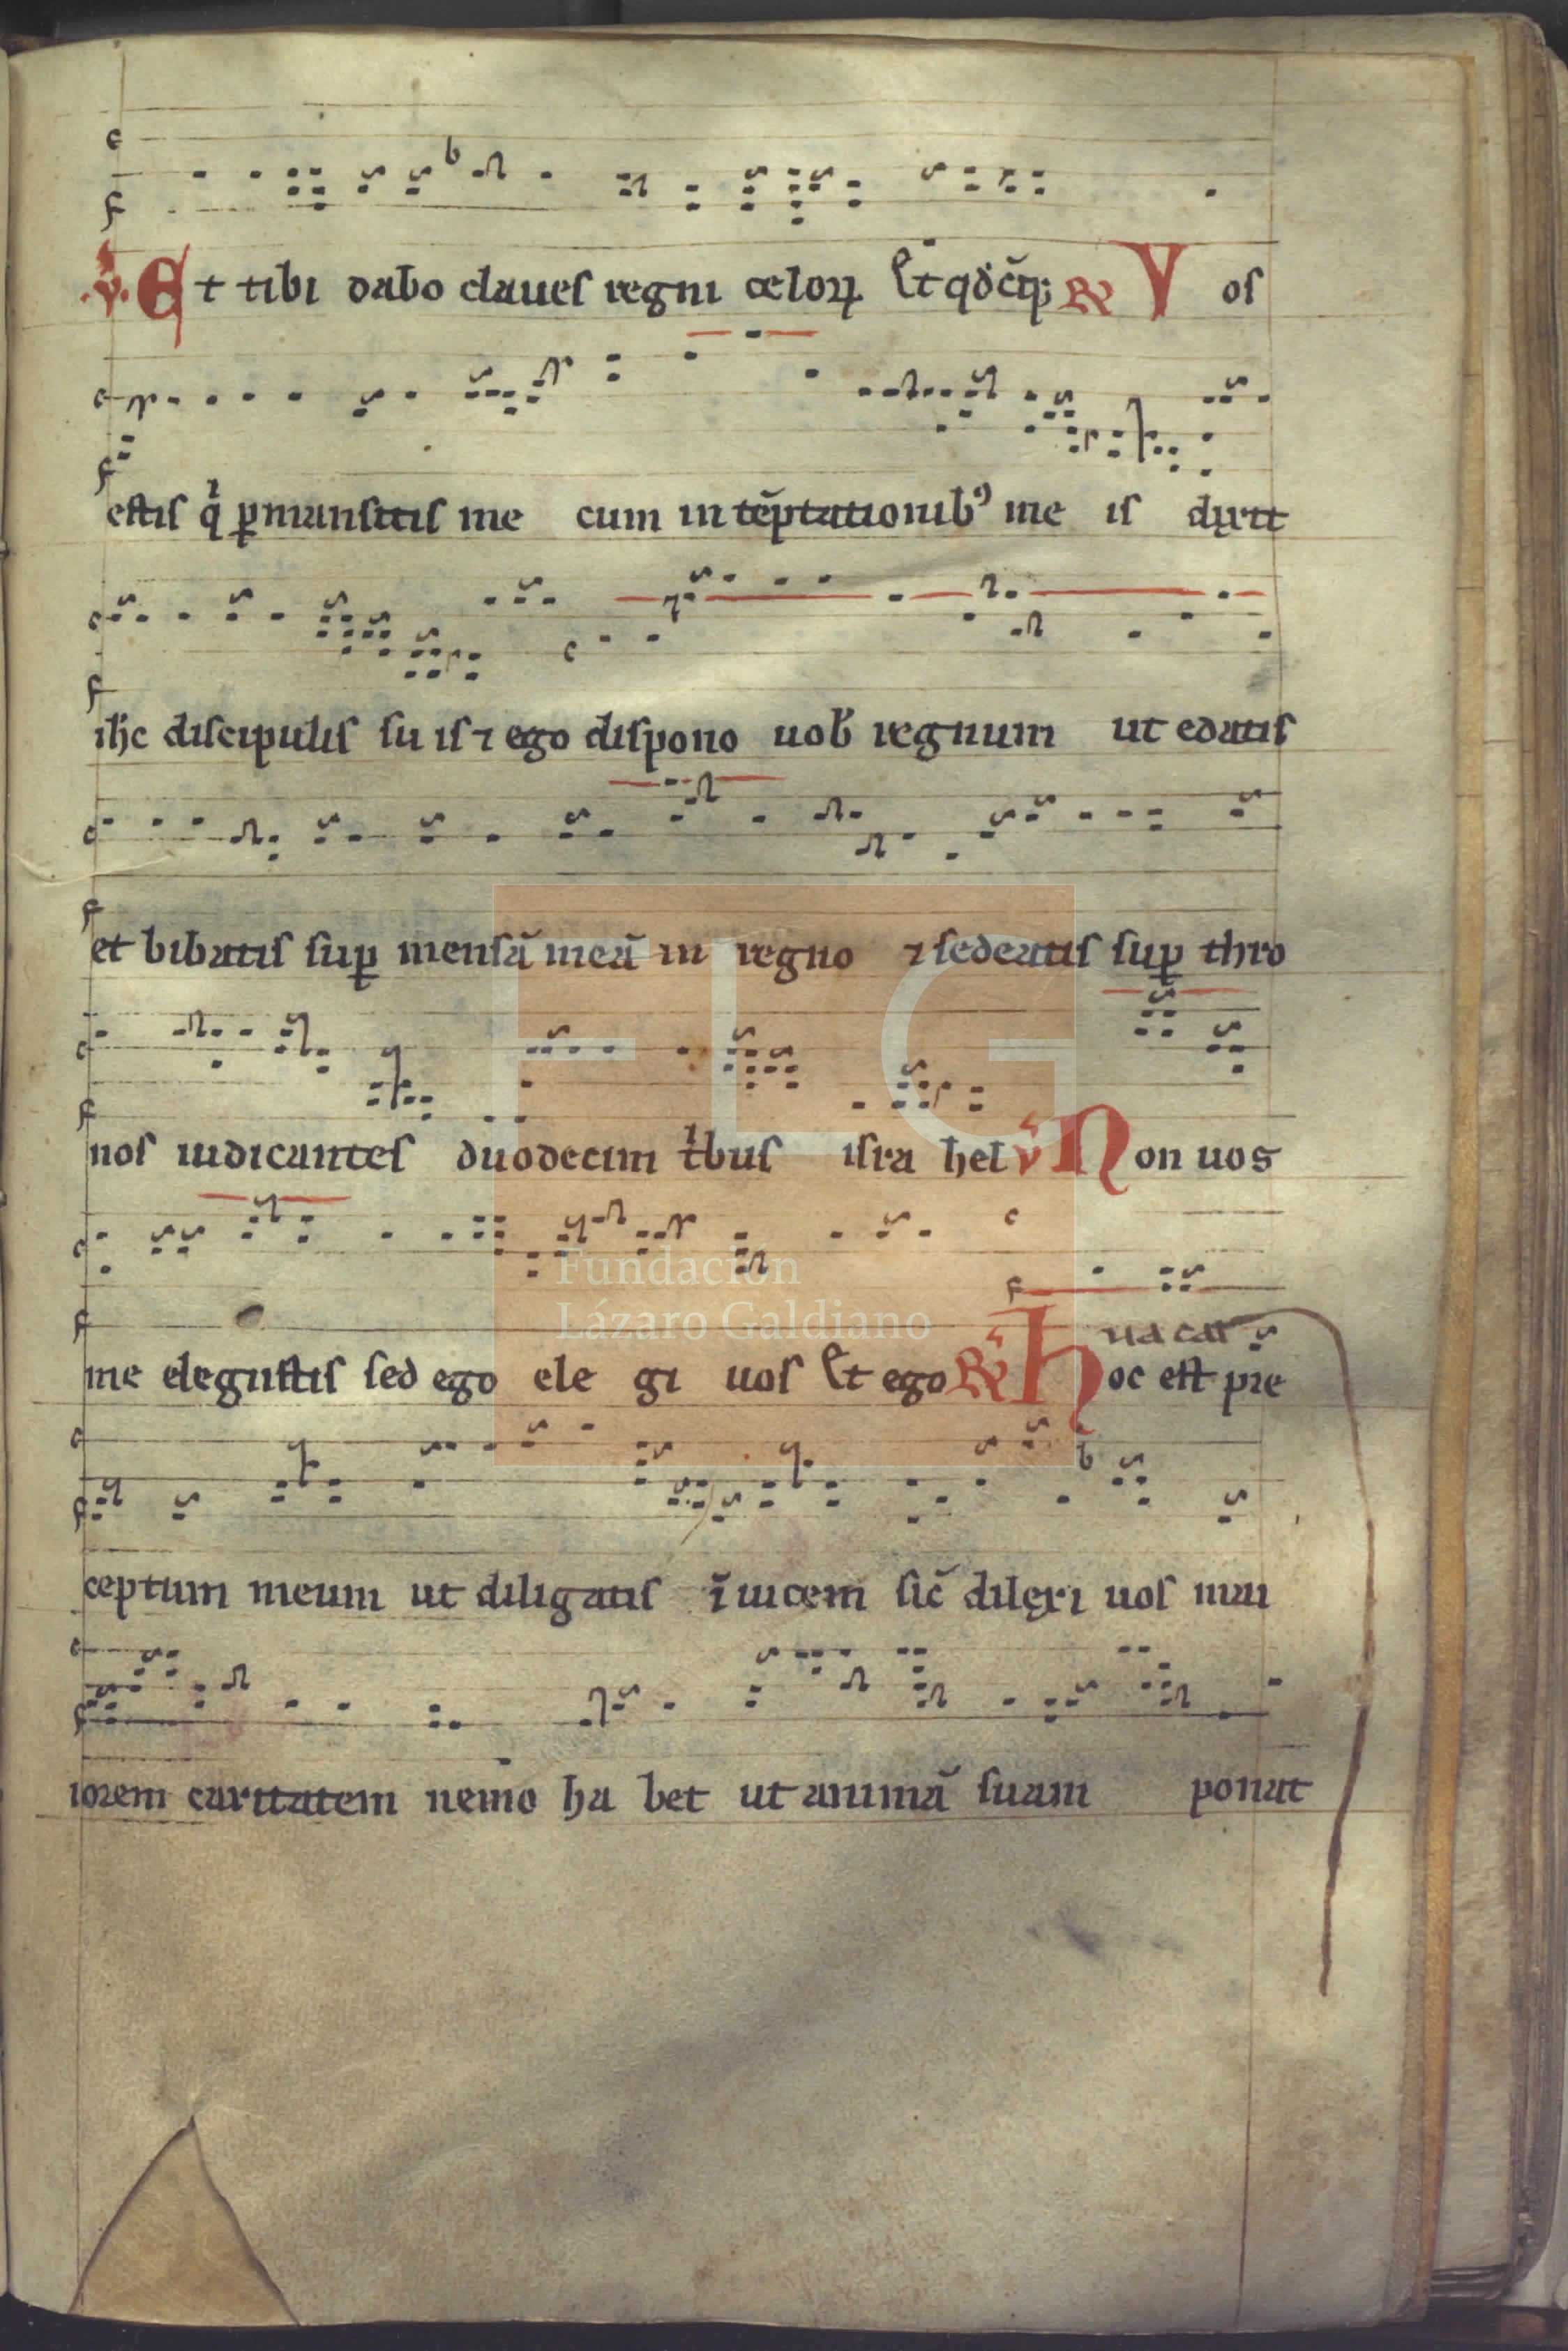 .v. Et tibi dabo claues regni celoꝝ Et qd̄cūqꝫ R Vos
estis qͥ ꝑmansistis me cum in tēptationibꝰ me is dixit
ihc discipulis su is ⁊ ego dispono uob regnum ut edatis
et bibatis suꝑ mensā meā in regno ⁊ sedeatis suꝑ thro
nos iudicantes duodecim tͥbus isra hel v Non uos
me elegistis sed ego ele gi uos Et ego R Hoc est pre
uacat
ceptum meum ut diligatis ī uicem sic̄ dilexi uos mai
iorem caritatem nemo ha bet ut animā suam ponat
FLG
Fundación
Lázaro Galdiano